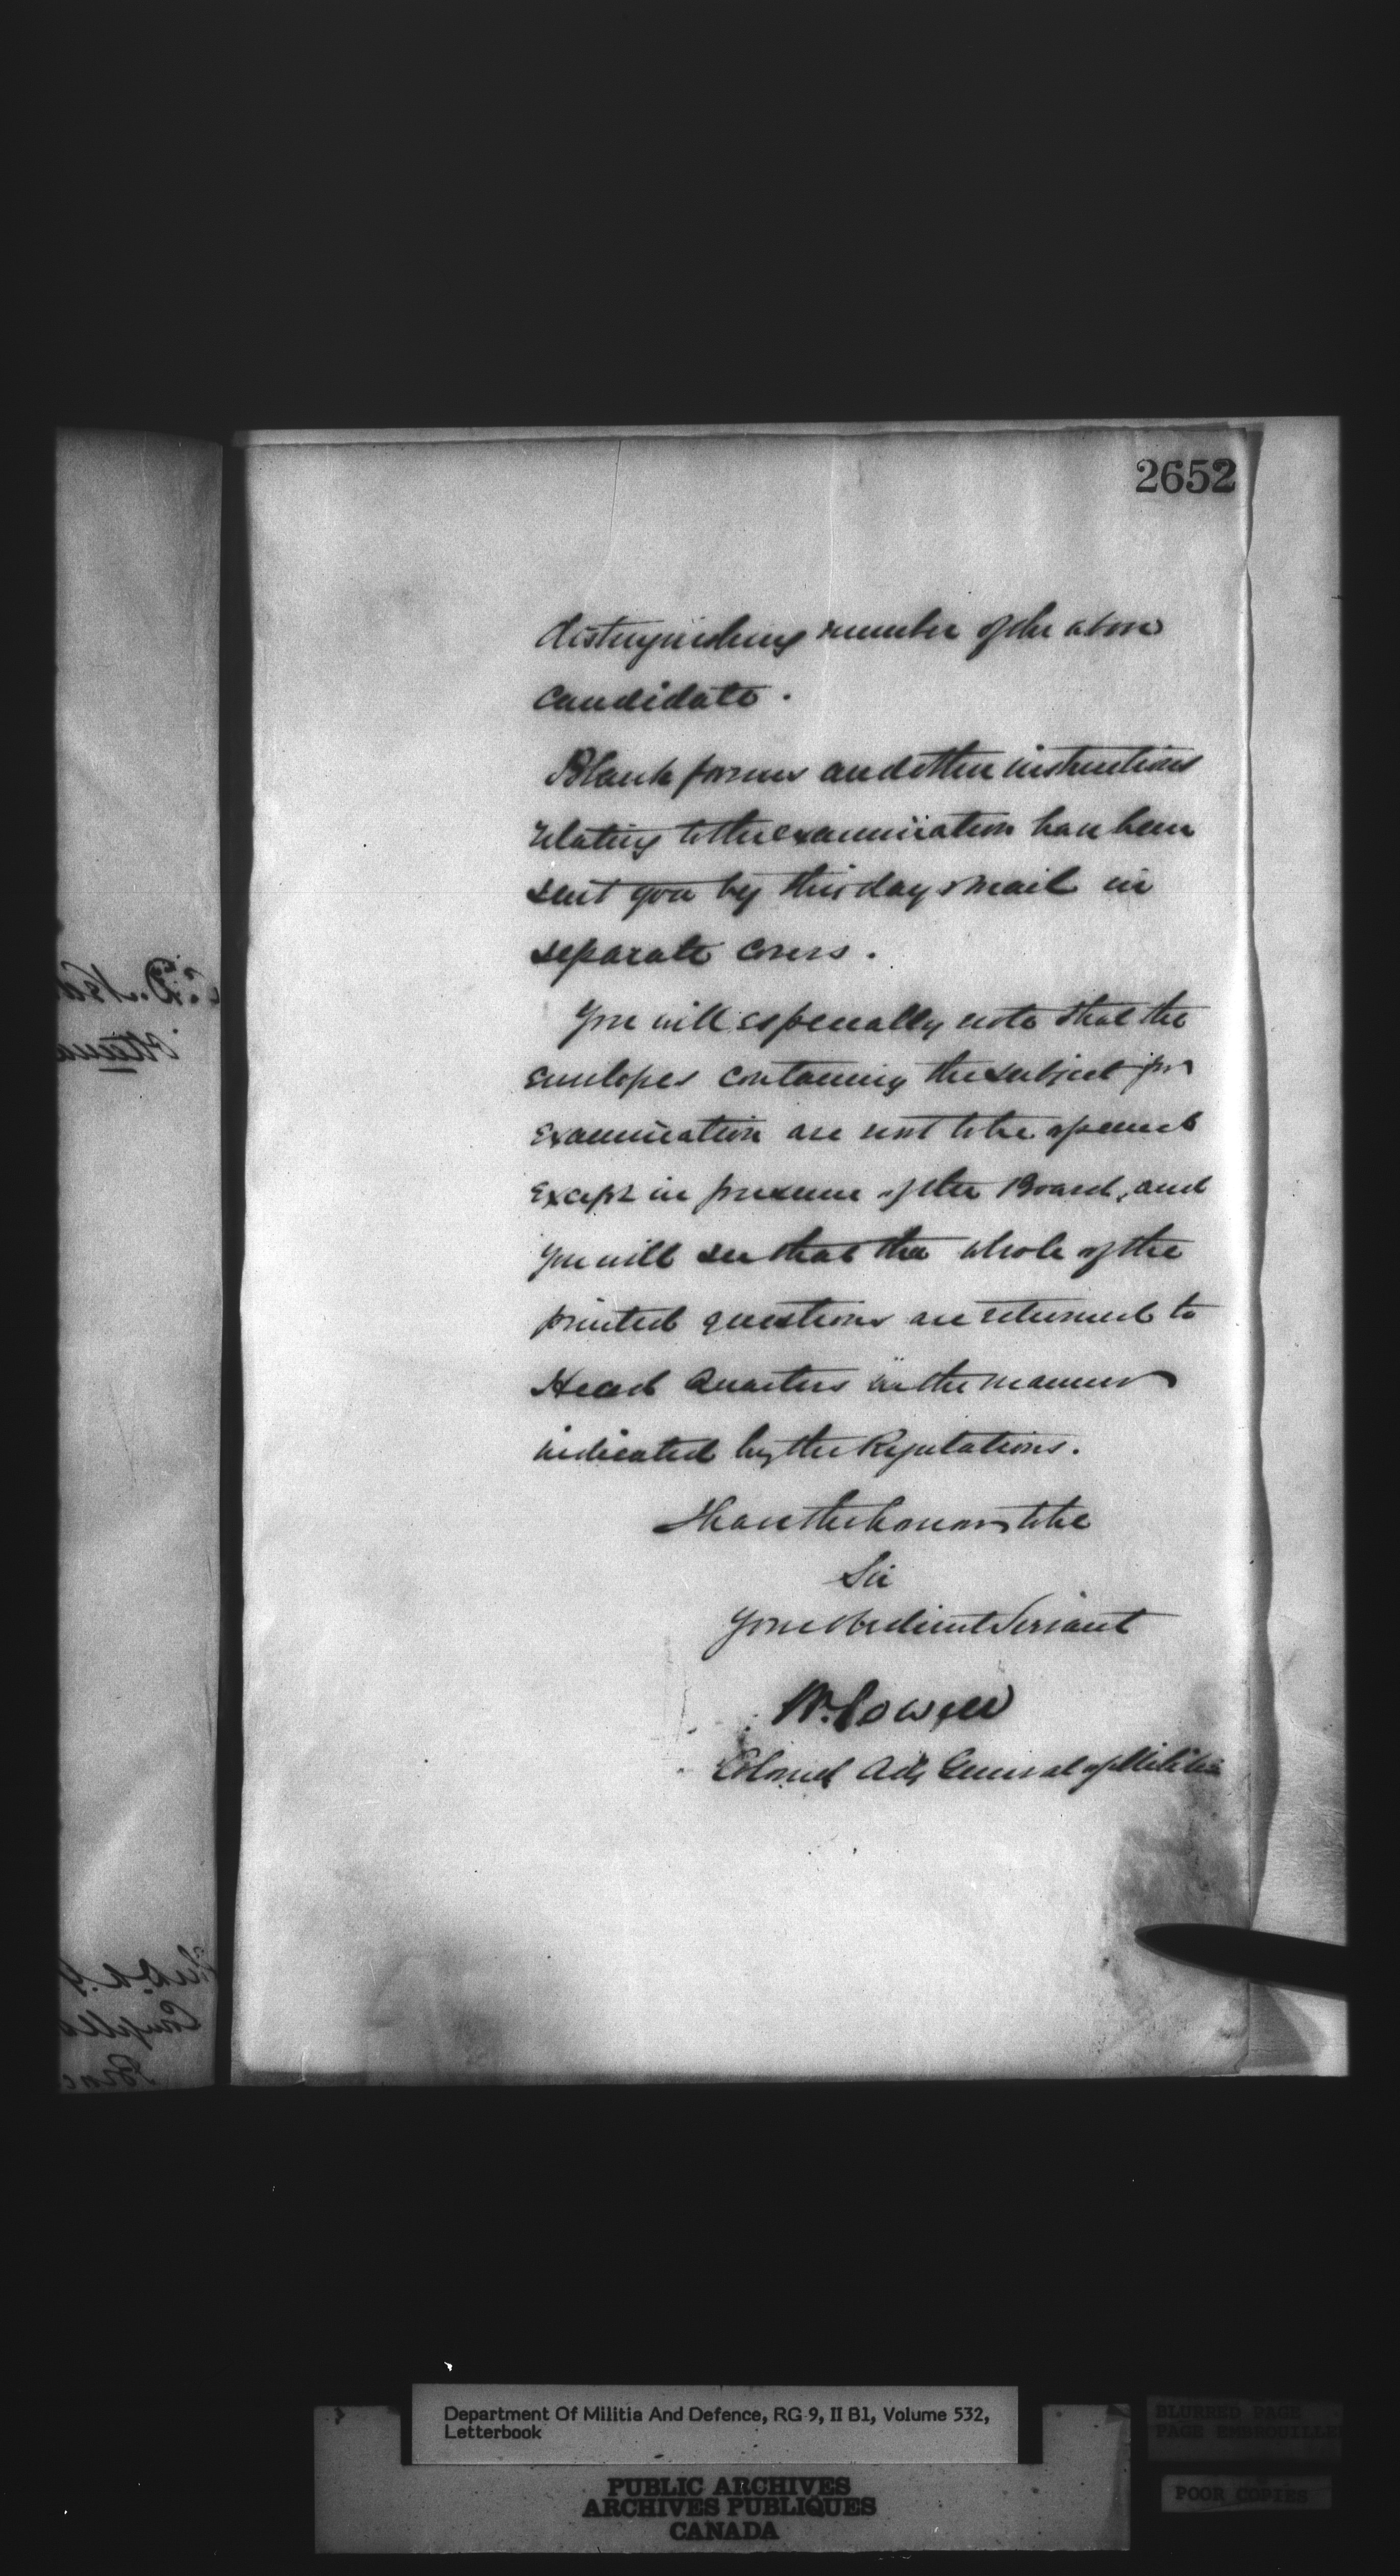 2652
distinguishing number of the above
candidate.
Blank forms and other instructions
relating to the examination have been
sent you by this days mail in
separate covers.
You will especially note that the
envelopes containing the subject for
examination are not to be opened
except in presence of the Board, and
you will see that the whole of the
printed questions are returned to
Head Quarters in the manner
indicated by the Regulations.
I have the honor to be
Sir
Your obedient Servant
W. Powell
Colonel Adj General of Militia
Department Of Militia And Defence, RG 9, II B1, Volume 532,
Letterbook
PUBLIC ARCHIVES
ARCHIVES PUBLIQUES
CANADA
BLURRED PAGE
PAGE EMBROUILLE
POOR COPIES